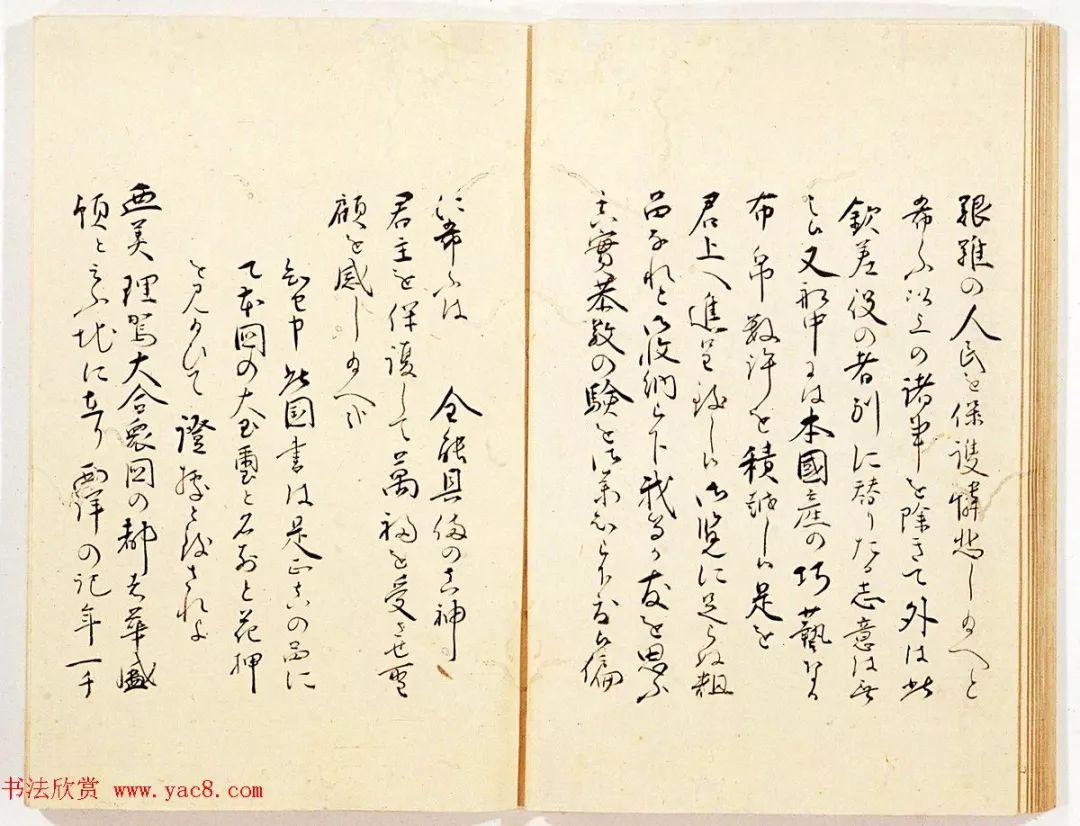 艱難の人民を保護憐愍し玉へと
希ふ以上の諸事を除きて外は此
欽差役の者別に替りたる志意は無
又船中には本國産の巧藝なる
布帛数許を積越し候是を
君上へ進呈致し候御覧に足らぬ粗
品なれと御收納被下我等か友を思ふ
真實恭敬の験を御
に希ふは 全能具備の真神
君主を保護して萬福を受させ聖
顧を感し玉へ
此国書は是正真の品に
て本国の大玉璽と名前と花押
を見 證據と致されよ
亜美理駕大合衆国の都 華盛
頓と云ふ地に 西洋の記年一千
书法欣赏 www.yac8.com